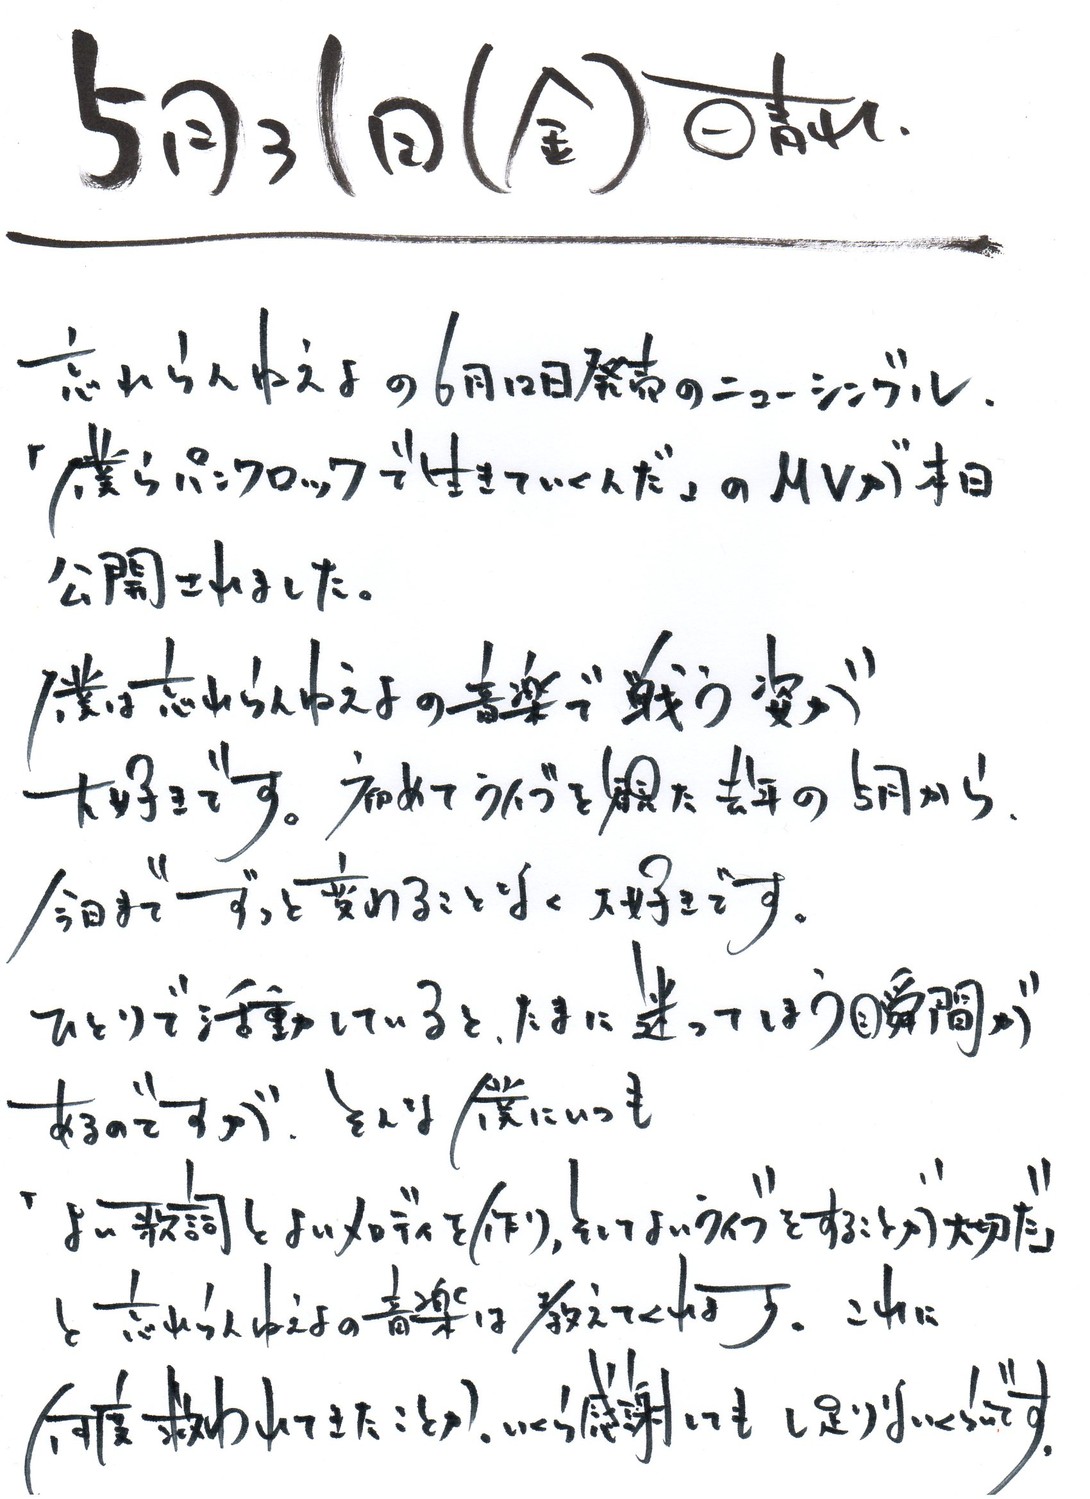 5月31日(金) 晴れ.
忘れらんねえよの6月12日発売のニューシングル、
「僕らパンクロックで生きていくんだ」のMVが本日
公開されました。
僕は忘れらんねえよの音楽で戦う姿が
大好きです。初めてライブを観た去年の5月から、
今日までずっと変わることなく大好きです。
ひとりで活動していると、たまに迷ってしまう瞬間が
あるのですが、そんな僕にいつも
「よい歌詞とよいメロディを作り、そしてよいライブをすることが大切だ」
と忘れらんねえよの音楽は教えてくれます。これに
何度救われてきたことか。いくら感謝してもし足りないくらいです。